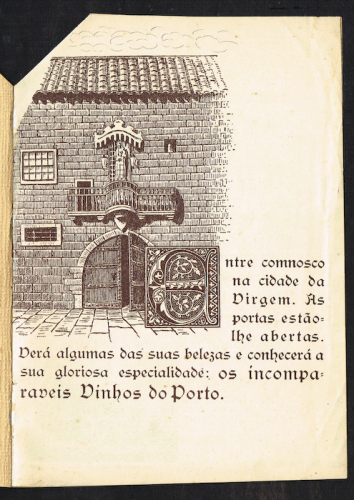 Entre comnosco
na cidade da
Virgem. As
portas estão-
lhe abertas.
Verá algumas das suas belezas e conhecerá a
sua gloriosa especialidade: os incompa-
raveis Vinhos do Porto.